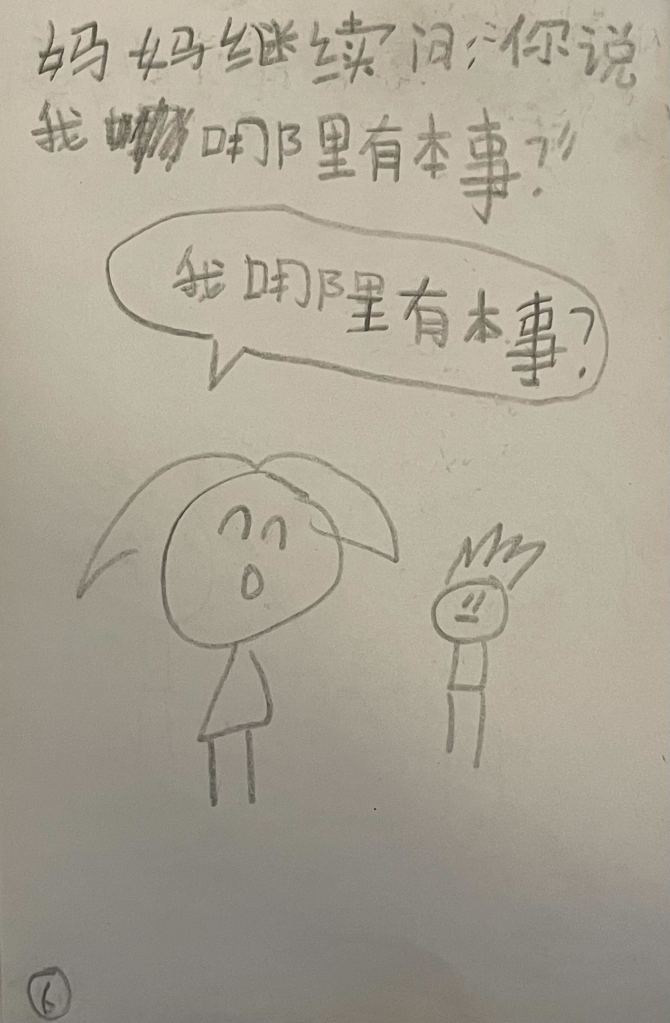 妈妈继续问:“你说
我哪里有本事?”
我哪里有本事?
6